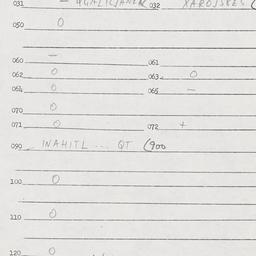 031 — 032
050 0
060 — 061
062 0 063 0
064 0 065 —
070 0
071 0 072 +
090 INAHITL ... QT (900
100 0
110 0
120 0